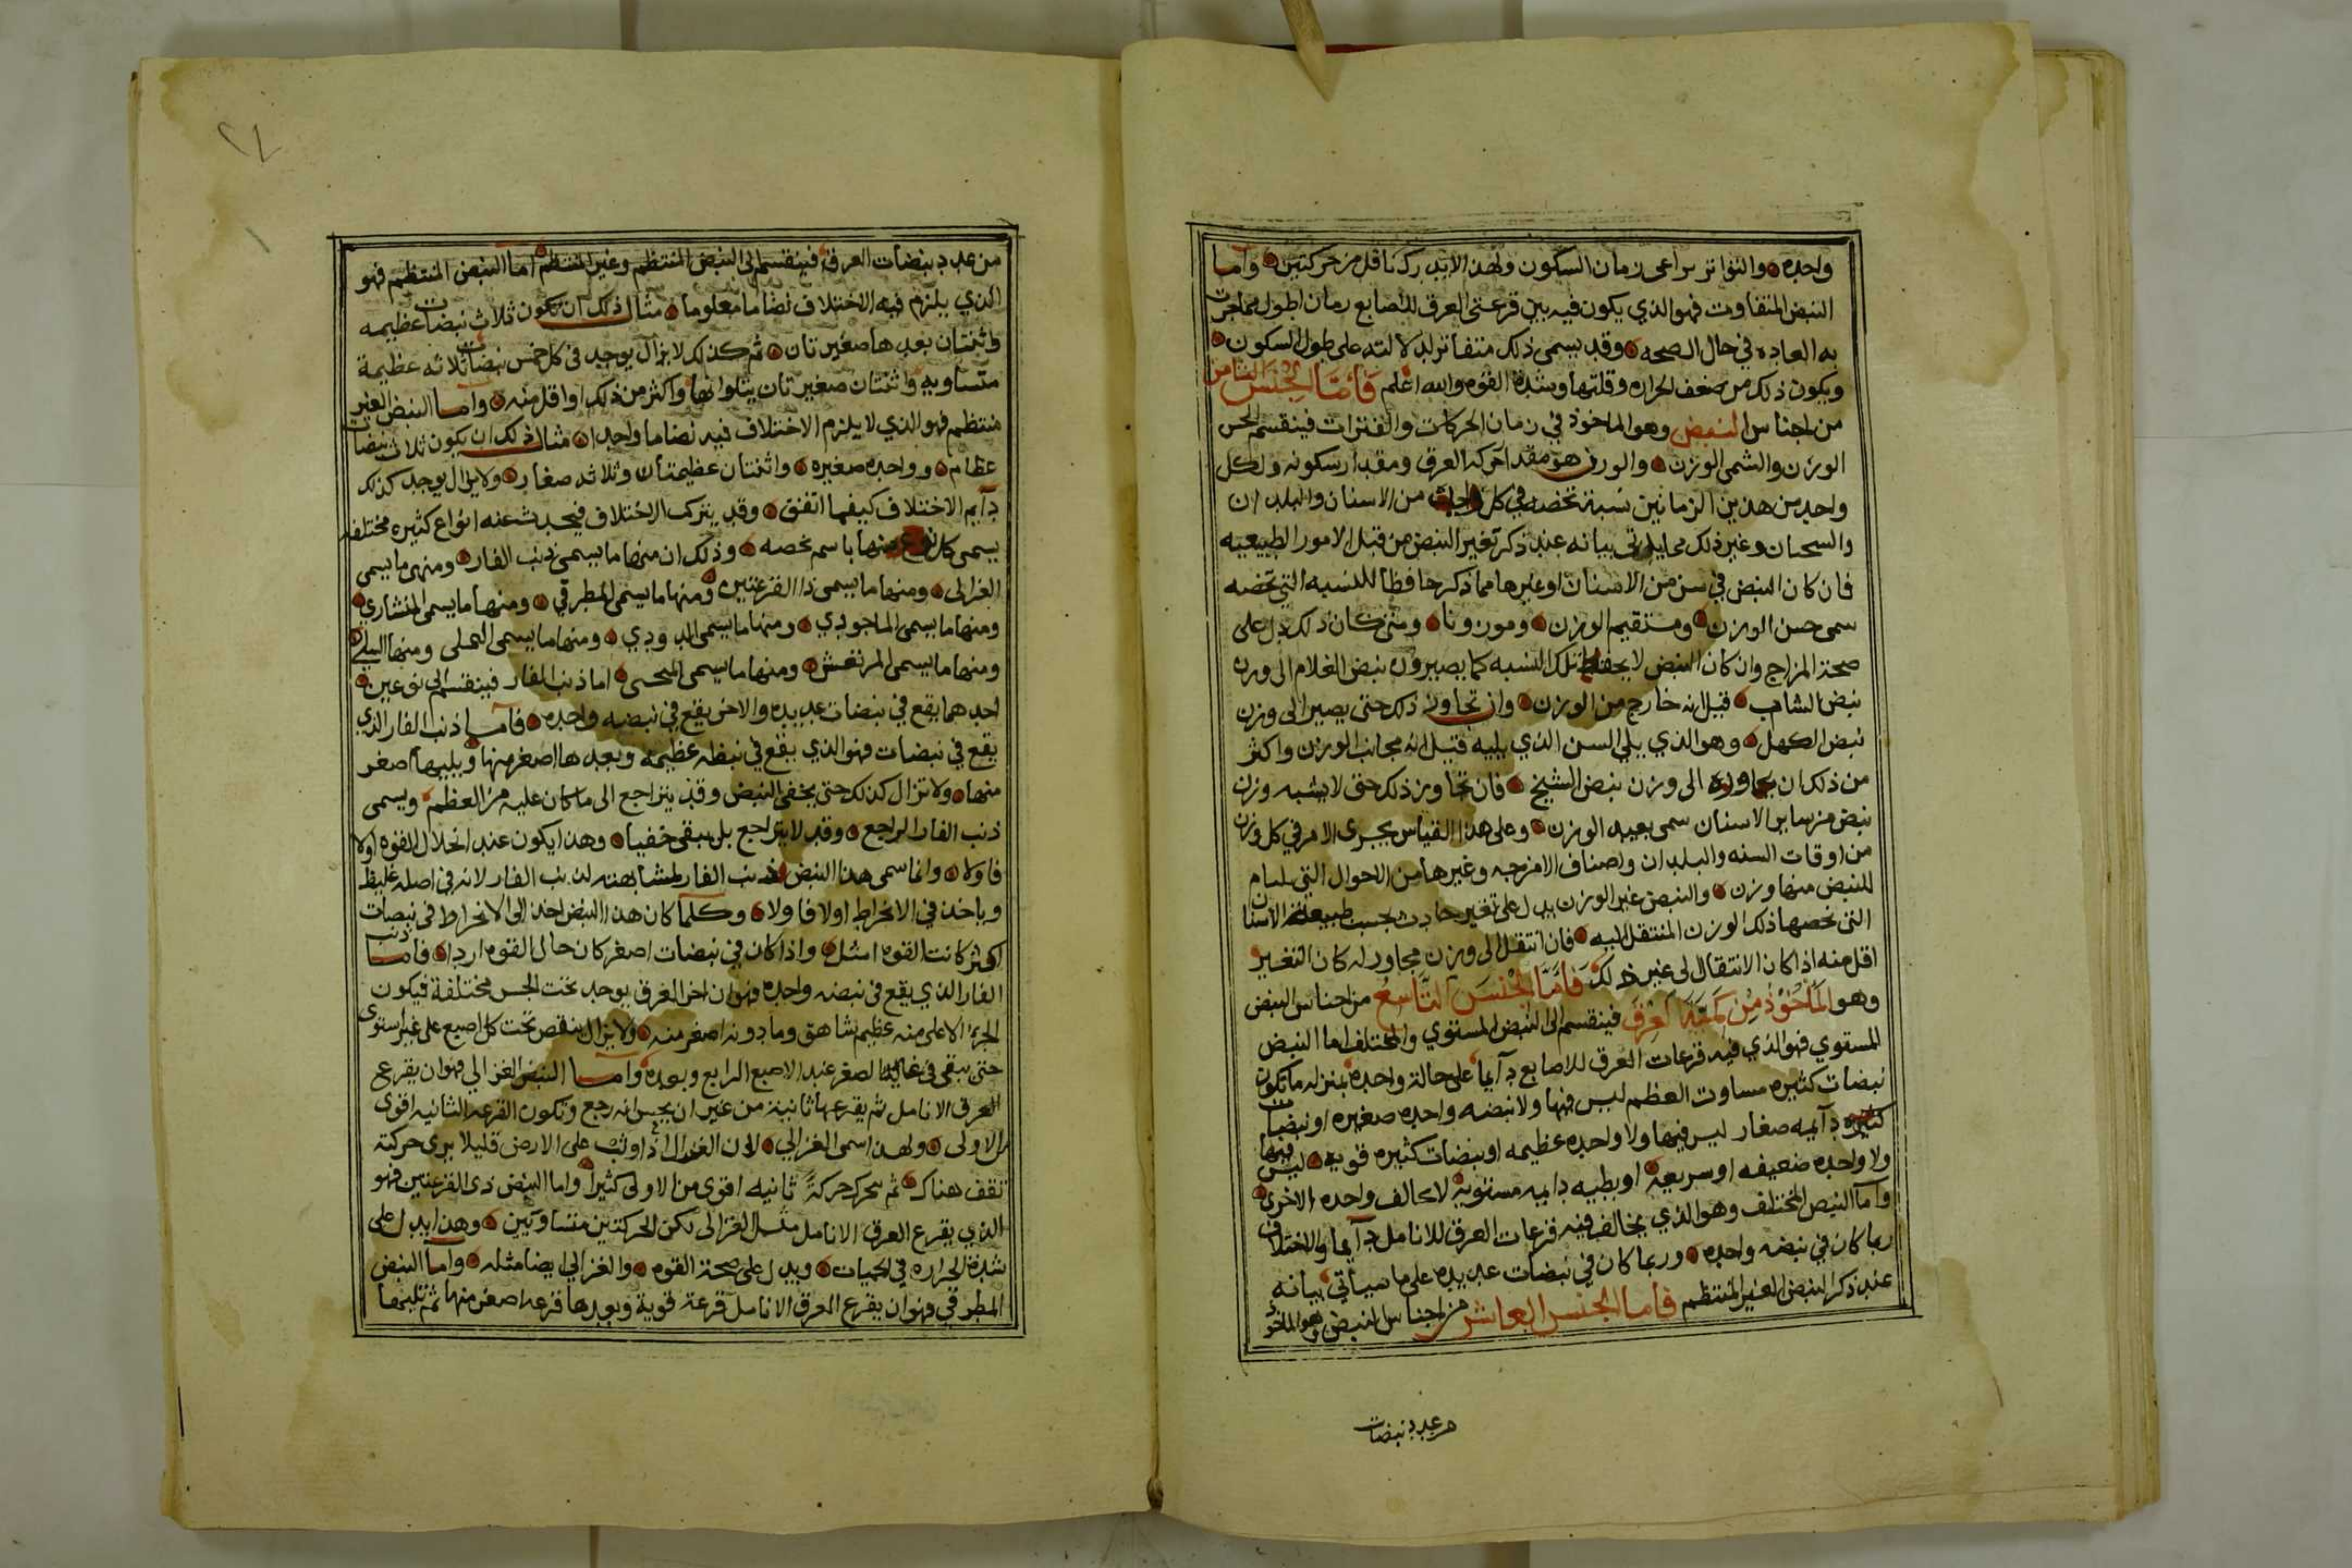 واحده والتواتر يراعى زمان السكون ولهذا لا يدرك نا قل من حركتين واما
النبض المتفاوت فهو الذي يكون فيه بين قرعتى العرق للاصابع زمان اطول مما جرت
به العاده في حال الصحه وقد يسمى ذلك متفاتر لدلالته على طول السكون
ويكون ذلك من ضعف الحراره وقلتها وشدة القوه والله اعلم فَاَمَّا الجِنسَ الثامن
من اجناس النبض وهو الماخوذ في زمان الحركات والفترات فينقسم الحسن
الوزن والشمى الوزن والوزن هو مقدار حركة العرق ومقدار سكونه ولكل
واحد من هذين الزمانين نسبة تخصه في كل واحد من الاسنان والبلدان
والسحنان وغير ذلك مما ياتى بيانه عند ذكر تغير النبض من قبل الامور الطبيعيه
فان كان النبض في سن من الاسنان اوغيرها مما ذكر حافظا للنسبه التي تخصه
سمى حسن الوزن ومستقيم الوزن وموزونا ومتى كان ذلك دل على
صحة المزاج وان كان النبض لا يحفظ تلك النسبه كما يصير وزن نبض الغلام الى وزن
نبض الشاب قيل انه خارج من الوزن وان تجاوز ذلك حتى يصير الى وزن
نبض الكهل وهو الذي يلي السن الذي يليه قيل انه مجانب الوزن واكثر
من ذلك ان يجاوزه الى وزن نبض الشيخ فان تجاوز ذلك حتى لا يشبه وزن
نبض من ساير الاسنان سمى بعيد الوزن وعلى هذا القياس يجرى الامر في كل وزن
من اوقات السنه والبلدان واصناف الامزجه وغيرها من الاحوال التي
للنبض منها وزن والنبض غير الوزن يدل على تغير حادث بحسب طبيعة الاسنان
التى تخصها ذلك الوزن المنتقل اليه فان انتقل الى وزن مجاور له كان التغير
اقل منه اذا كان الانتقال لى غير ذلك فَاَمَّا الجْنسَ التَّاسِعُ من اجناس النبض
وهو المَاْخُوْذُ مِن كَمِّيَّةَ العِرْقَ فينقسم الى النبض المستوي والمختلف اما النبض
المستوي فهو الذي فيه قرعات العرق للاصابع دآيما على حالة واحده بمنزله ما تكون
نبضات كثيره مساوت العظم ليس فيها ولا نبضه واحده صغيره او نبضات
كثيره دآيمه صغار ليس فيها ولا واحده عظيمه او نبضات كثيره قويه ليس فيها
ولا واحده ضعيفه او سريعة او بطيه دايمه مستوية لا تخالف واحده الاخرى
واما النبض المختلف وهو الذي يخالف فيه قرعات العرق للانامل دآيما والاختلاف
ربما كان في نبضه واحده وربما كان في نبضات عديده على ما سيأتي بيانه
عند ذكر النبض الغير المنتظم فأما الجنس العاشر من اجناس النبض وهو الماخوذ
من عدد نبضات
من عدد نبضات العرق فينقسم الى النبض المنتظم وغير المنتظم اما النبض المنتظم فهو
الذي يلزم فيه الاختلاف نضاما معلوما مثال ذلك ان تكون ثلاث نبضات عظيمه
واثنتان بعدها صغيرتان ثم كذلك لا يزال يوجد في كل خمس نبضات ثلاثه عظيمة
متساويه واثنتان صغيرتان يتلوانها واكثر من ذلك او اقل منه واما النبض الغير
منتظم فهو الذي لا يلزم الاختلاف فيه نضاما واحدا مثال ذلك ان يكون ثلاث نبضات
عظام وواحده صغيره واثنتان عظيمتان وثلاثه صغار ولا يزال يوجد كذلك
دآيم الاختلاف كيفما اتفق وقد يتركب الاختلاف فيحدث عنه انواع كثيره مختلفه
يسمى كل نوع منها باسم يخصه وذلك ان منها ما يسمى ذنب الفار ومنهى ما يسمى
الغزالى ومنها ما يسمى ذا القرعتين ومنها ما يسمى المطرقي ومنها ما يسمى المنشاري
ومنها ما يسمى الماجودي ومنها ما يسمى الدودي ومنها ما يسمى النملى ومنها السلي
ومنها ما يسمى المرتعش ومنها ما يسمى المنحنى اما ذنب الفار فينقسم الى نوعين
احدهما يقع في نبضات عديده والاخر يقع في نبضه واحده فاما ذنب الفار الذي
يقع في نبضات فهو الذي يقع في نبظه عظيمه وبعدها اصغر منها ويليها اصغر
منها ولا تزال كذلك حتى يخفى النبض وقد يتراجع الى ما كان عليه من العظم ويسمى
ذنب الفار الراجع وقد لا يتراجع بل يبقى خفيا وهذا يكون عند انحلال القوه اولا
فاولا وانما سمى هذا النبض ذنب الفار لمشابهته لذنب الفار لانه في اصله غليظ
وياخذ في الانخراط اولا فاولا وكلما كان هذا النبض اخذ الى الانخراط في نبضات
اكثر كانت القوه امثل واذا كان في نبضات اصغر كان حال القوه اردا فاما ذنب
الفار الذي يقع في نبضه واحده فهو ان اخر العرق يوجد تحت الحس مختلفة فيكون
الجزء الاعلى منه عظيم شاهق وما دونه اصغر منه ولا يزال ينقص تحت كل اصبع على غير استوى
حتى يبقى في غاية الصغر عند الاصبع الرابع وبعده واما النبض الغزالي فهو ان يقرع
العرق الانامل ثم يقرعها ثانية من غير ان يحس انه رجع وتكون القرعه الثانيه اقوى
من الاولى ولهذا سمى الغزالي لان الغزال اذا وثب على الارض قليلا يرى حركته
تقف هناك ثم يتحرك حركةً ثانيه اقوى من الاولى كثيرا واما النبض ذى القرعتين فهو
الذي يقرع العرق الانامل مثل الغزالى لكن الحركتين متساويتين وهذا يدل على
شدة الحراره في الحميات ويدل على صحة القوه والغزالي ايضا مثله واما النبض
المطرقي فهو ان يقرع العرق الانامل قرعة قوية وبعدها قرعه اصغر منها ثم تليها